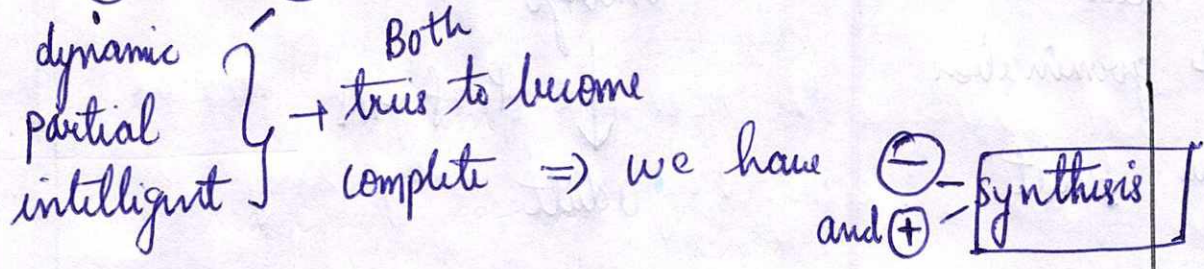 dynamic
partial
intelligent
} → Both
tries to become
complete ⇒ we have ⊖
and ⊕ synthesis